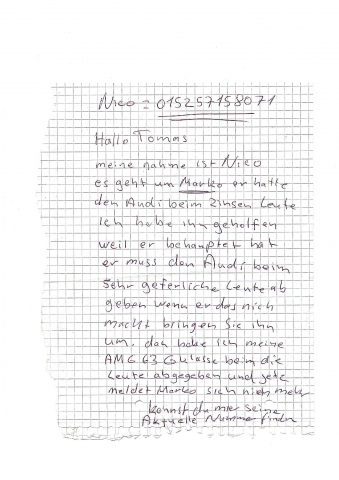 Nico = 015257158071
Hallo Tomas
meine nahme ist Nico
es geht um Marko er hatte
den Audi beim Zinsen Leute
Ich habe ihn geholfen
weil er behauptet hat
er muss den Audi beim
sehr geferliche Leute ab
geben wenn er das nich
macht bringen Sie ihn
um. dan habe ich meine
AMG 63 G klasse beim die
Leute abgegeben und jetz
meldet Marko sich nich mehr
kannst du mir seine
Aktuelle Nummer finden